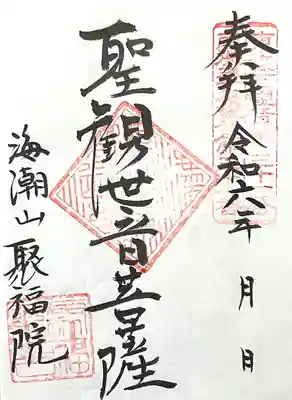 奉拝 令和六年 月 日
聖観世音菩薩
海潮山 聚福院